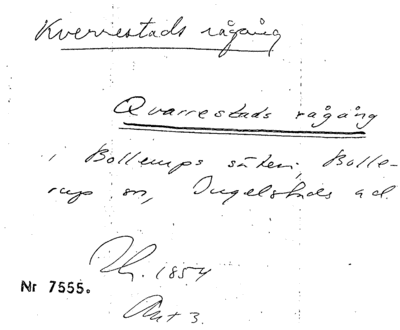 Kverrestads rågång
Qvarrestads rågång
i Bollerups säteri, Bolle-
rup sn, Ingelstads hd.
1854
Nr 7555.
Akt 3.